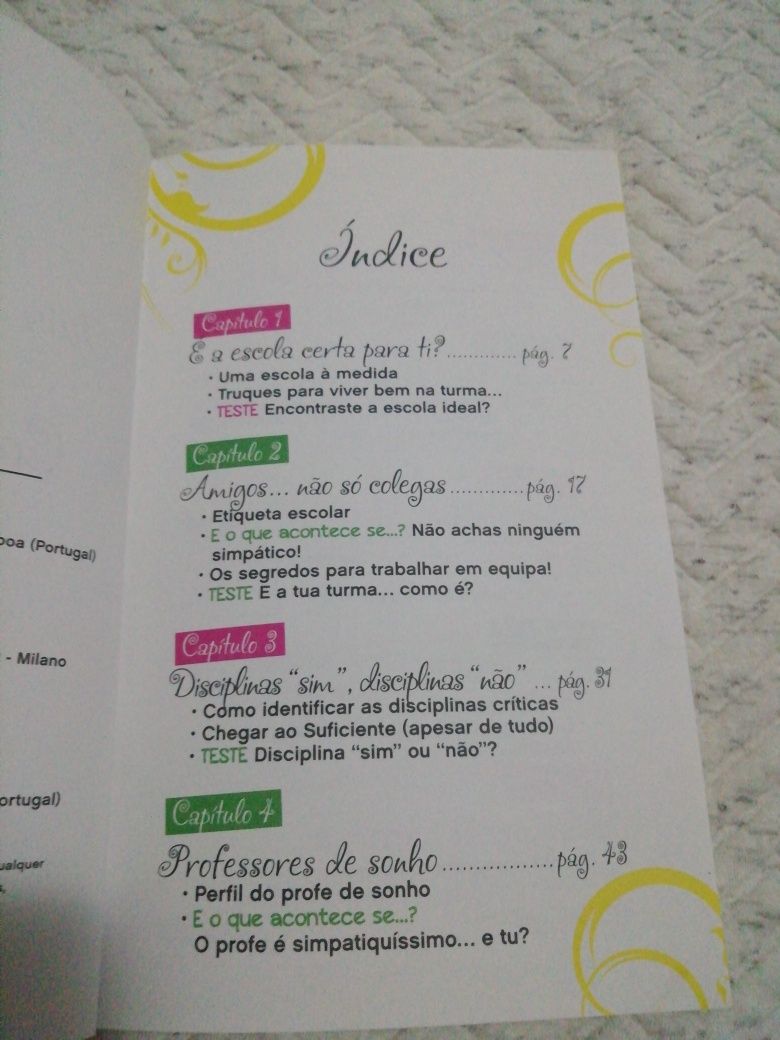 Índice
Capítulo 1
E a escola certa para ti?............. pág. 7
• Uma escola à medida
• Truques para viver bem na turma...
• TESTE Encontraste a escola ideal?
Capítulo 2
Amigos... não só colegas.............pág. 17
• Etiqueta escolar
• E o que acontece se...? Não achas ninguém
simpático!
• Os segredos para trabalhar em equipa!
• TESTE E a tua turma... como é?
Capítulo 3
Disciplinas “sim”, disciplinas “não” ... pág. 31
• Como identificar as disciplinas críticas
• Chegar ao Suficiente (apesar de tudo)
• TESTE Disciplina “sim” ou “não”?
Capítulo 4
Professores de sonho.................pág. 43
• Perfil do profe de sonho
• E o que acontece se...?
O profe é simpatiquíssimo... e tu?
(Portugal)
- Milano